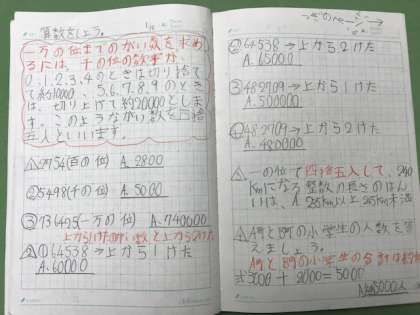 算数をしよう。
一万の位までのがい数を求め
るには、千の位の数字が、
0、1、2、3、4のときは切り捨て
て約10000、5、6、7、8、9のとき
は、切り上げて約20000としま
す。このようながい数を四捨
五入といいます。
2754(百の位) A.2800
②5498(千の位) A.5000
③736405(一万の位) A.740000
上から1けたのがい数と上から2けた
①64538→上から1けた
A.60000
つぎのページ→
②64538→上から2けた
A.65000
③482709→上から1けた
A.500000
④482709→上から2けた
A.480000
一の位で四捨五入して、240
kmになる整数の長さのはん
いは、A.235km以上245km未満
A町とB町の小学生の人数を
答えましょう。
A町とB町の小学生の合計は約
式3000+2000=5000
5000人